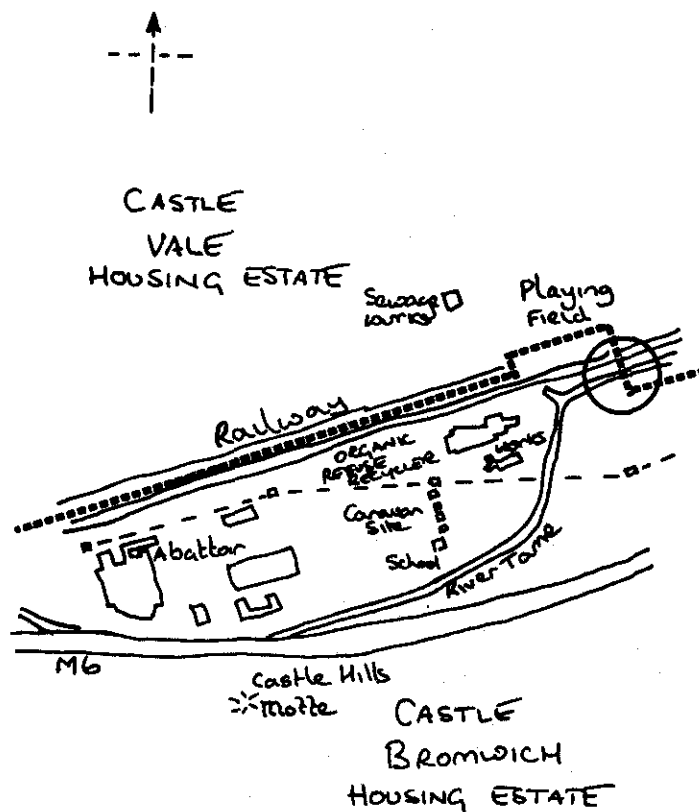 CASTLE
VALE
HOUSING ESTATE
Sewage
works
Playing
Field
Railway
ORGANIC
REFUSE
RECYCLER
works
Caravan
Site
Abattar
School
River Tame
M6
Castle Hills
Motte
CASTLE
BROMWICH
HOUSING ESTATE